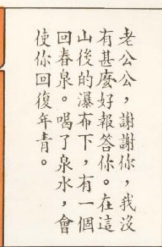 老公公，謝謝你，我沒
有甚麼好報答你。在這
山後的瀑布下，有一個
回春泉。喝了泉水，會
使你回復年青。